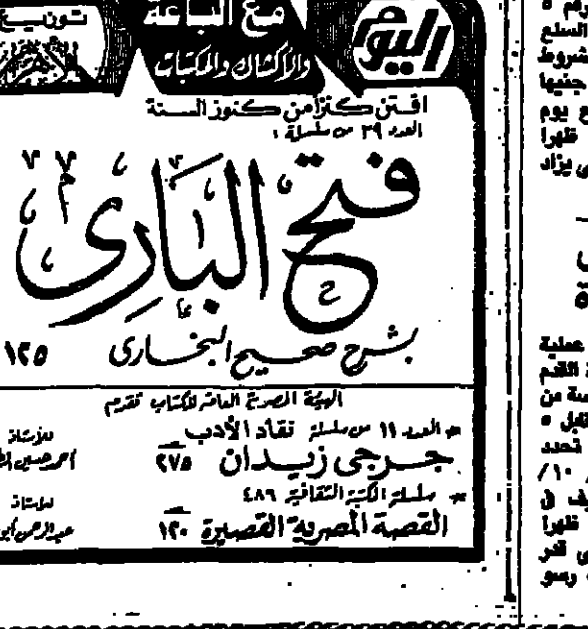 اليوم
مع الباعة
والأكشاك والمكتبات
توزيع
الأهرام
اقتن كنزا من كنوز السنة
العدد ٢٩ من سلسلة :
فتح البارى
بشرح صحيح البخارى
١٢٥
الهيئة المصرية العامة للكتاب تقدم
* العدد ١١ من سلسلة نقاد الأدب
جرجى زيدان ٢٧٥
للأستاذ
أحمد حسين
* سلسلة المكتبة الثقافية ٤٨٦
القصة المصرية القصيرة ١٢٠
للأستاذ
عبدالرحمن أبو
السلع
جنيها
يوم
ظهرا
يزاد
عملية
القدم
من
تحدد
/ ١٠ /
فى
ظهرا
قدر
رسو